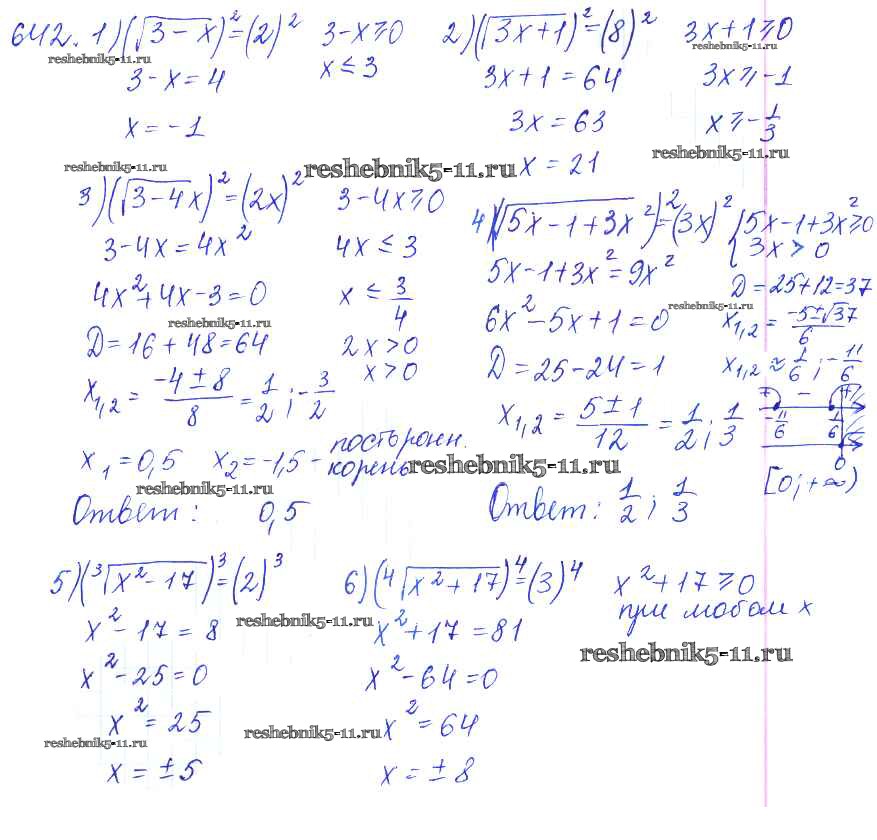 642. 1) (√(3-x))² = (2)²
3-x ≥ 0
reshebnik5-11.ru
3-x = 4
x ≤ 3
x = -1
2) (√(3x+1))² = (8)²
3x+1 ≥ 0
reshebnik5-11.ru
3x+1 = 64
3x ≥ -1
3x = 63
x ≥ -1/3
reshebnik5-11.ru
reshebnik5-11.ru
reshebnik5-11.ru
x = 21
3) (√(3-4x))² = (2x)²
3-4x ≥ 0
3-4x = 4x²
4x ≤ 3
4x²+4x-3=0
x ≤ 3/4
reshebnik5-11.ru
D=16+48=64
2x > 0
x > 0
x₁,₂ = (-4±8)/8 = 1/2; -3/2
x₁ = 0,5 x₂ = -1,5 - посторонн.
корень
reshebnik5-11.ru
reshebnik5-11.ru
Ответ: 0,5
4) (√(5x-1+3x²))² = (3x)²
{5x-1+3x² ≥ 0
3x > 0
5x-1+3x² = 9x²
D=25+12=37
reshebnik5-11.ru
6x²-5x+1=0
x₁,₂ = (-5±√37)/6
D=25-24=1
x₁,₂ ≈ 1/6; -11/6
+ - +
-11/6 1/6
0
x₁,₂ = (5±1)/12 = 1/2; 1/3
[0;+∞)
Ответ: 1/2; 1/3
5) (³√(x²-17))³ = (2)³
x²-17 = 8
reshebnik5-11.ru
x²-25=0
x² = 25
reshebnik5-11.ru
x = ±5
6) (⁴√(x²+17))⁴ = (3)⁴
x²+17 ≥ 0
при любом x
x²+17 = 81
reshebnik5-11.ru
x²-64=0
x² = 64
reshebnik5-11.ru
x = ±8